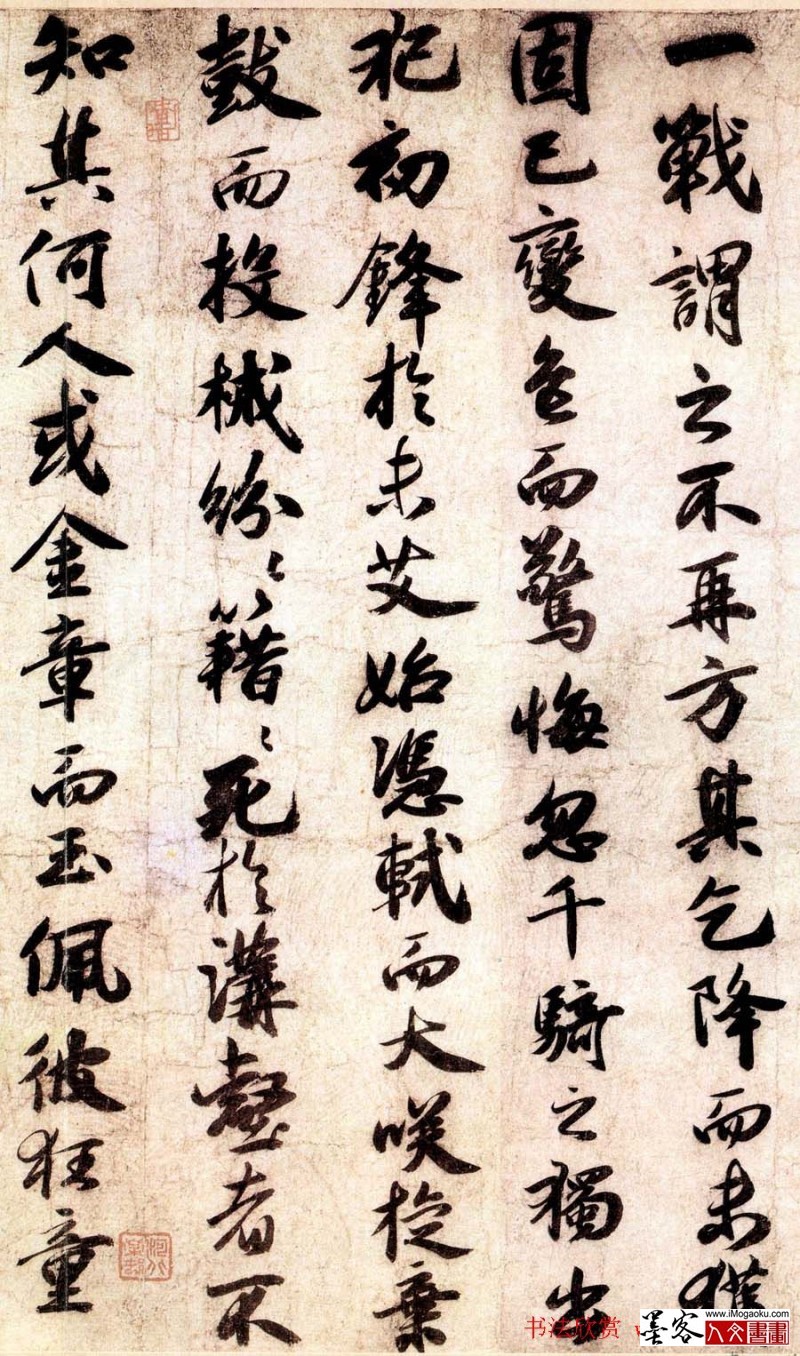 一戰謂之不再方其乞降而未獲
固已變色而驚悔忽千騎之獨出
犯初鋒於未艾始憑軾而大咲旋棄
鼓而投械紛〻籍〻死於溝壑者不
知其何人或金章而玉佩彼狂童
书法欣赏
www.iMogaoku.com
墨客人文書畫